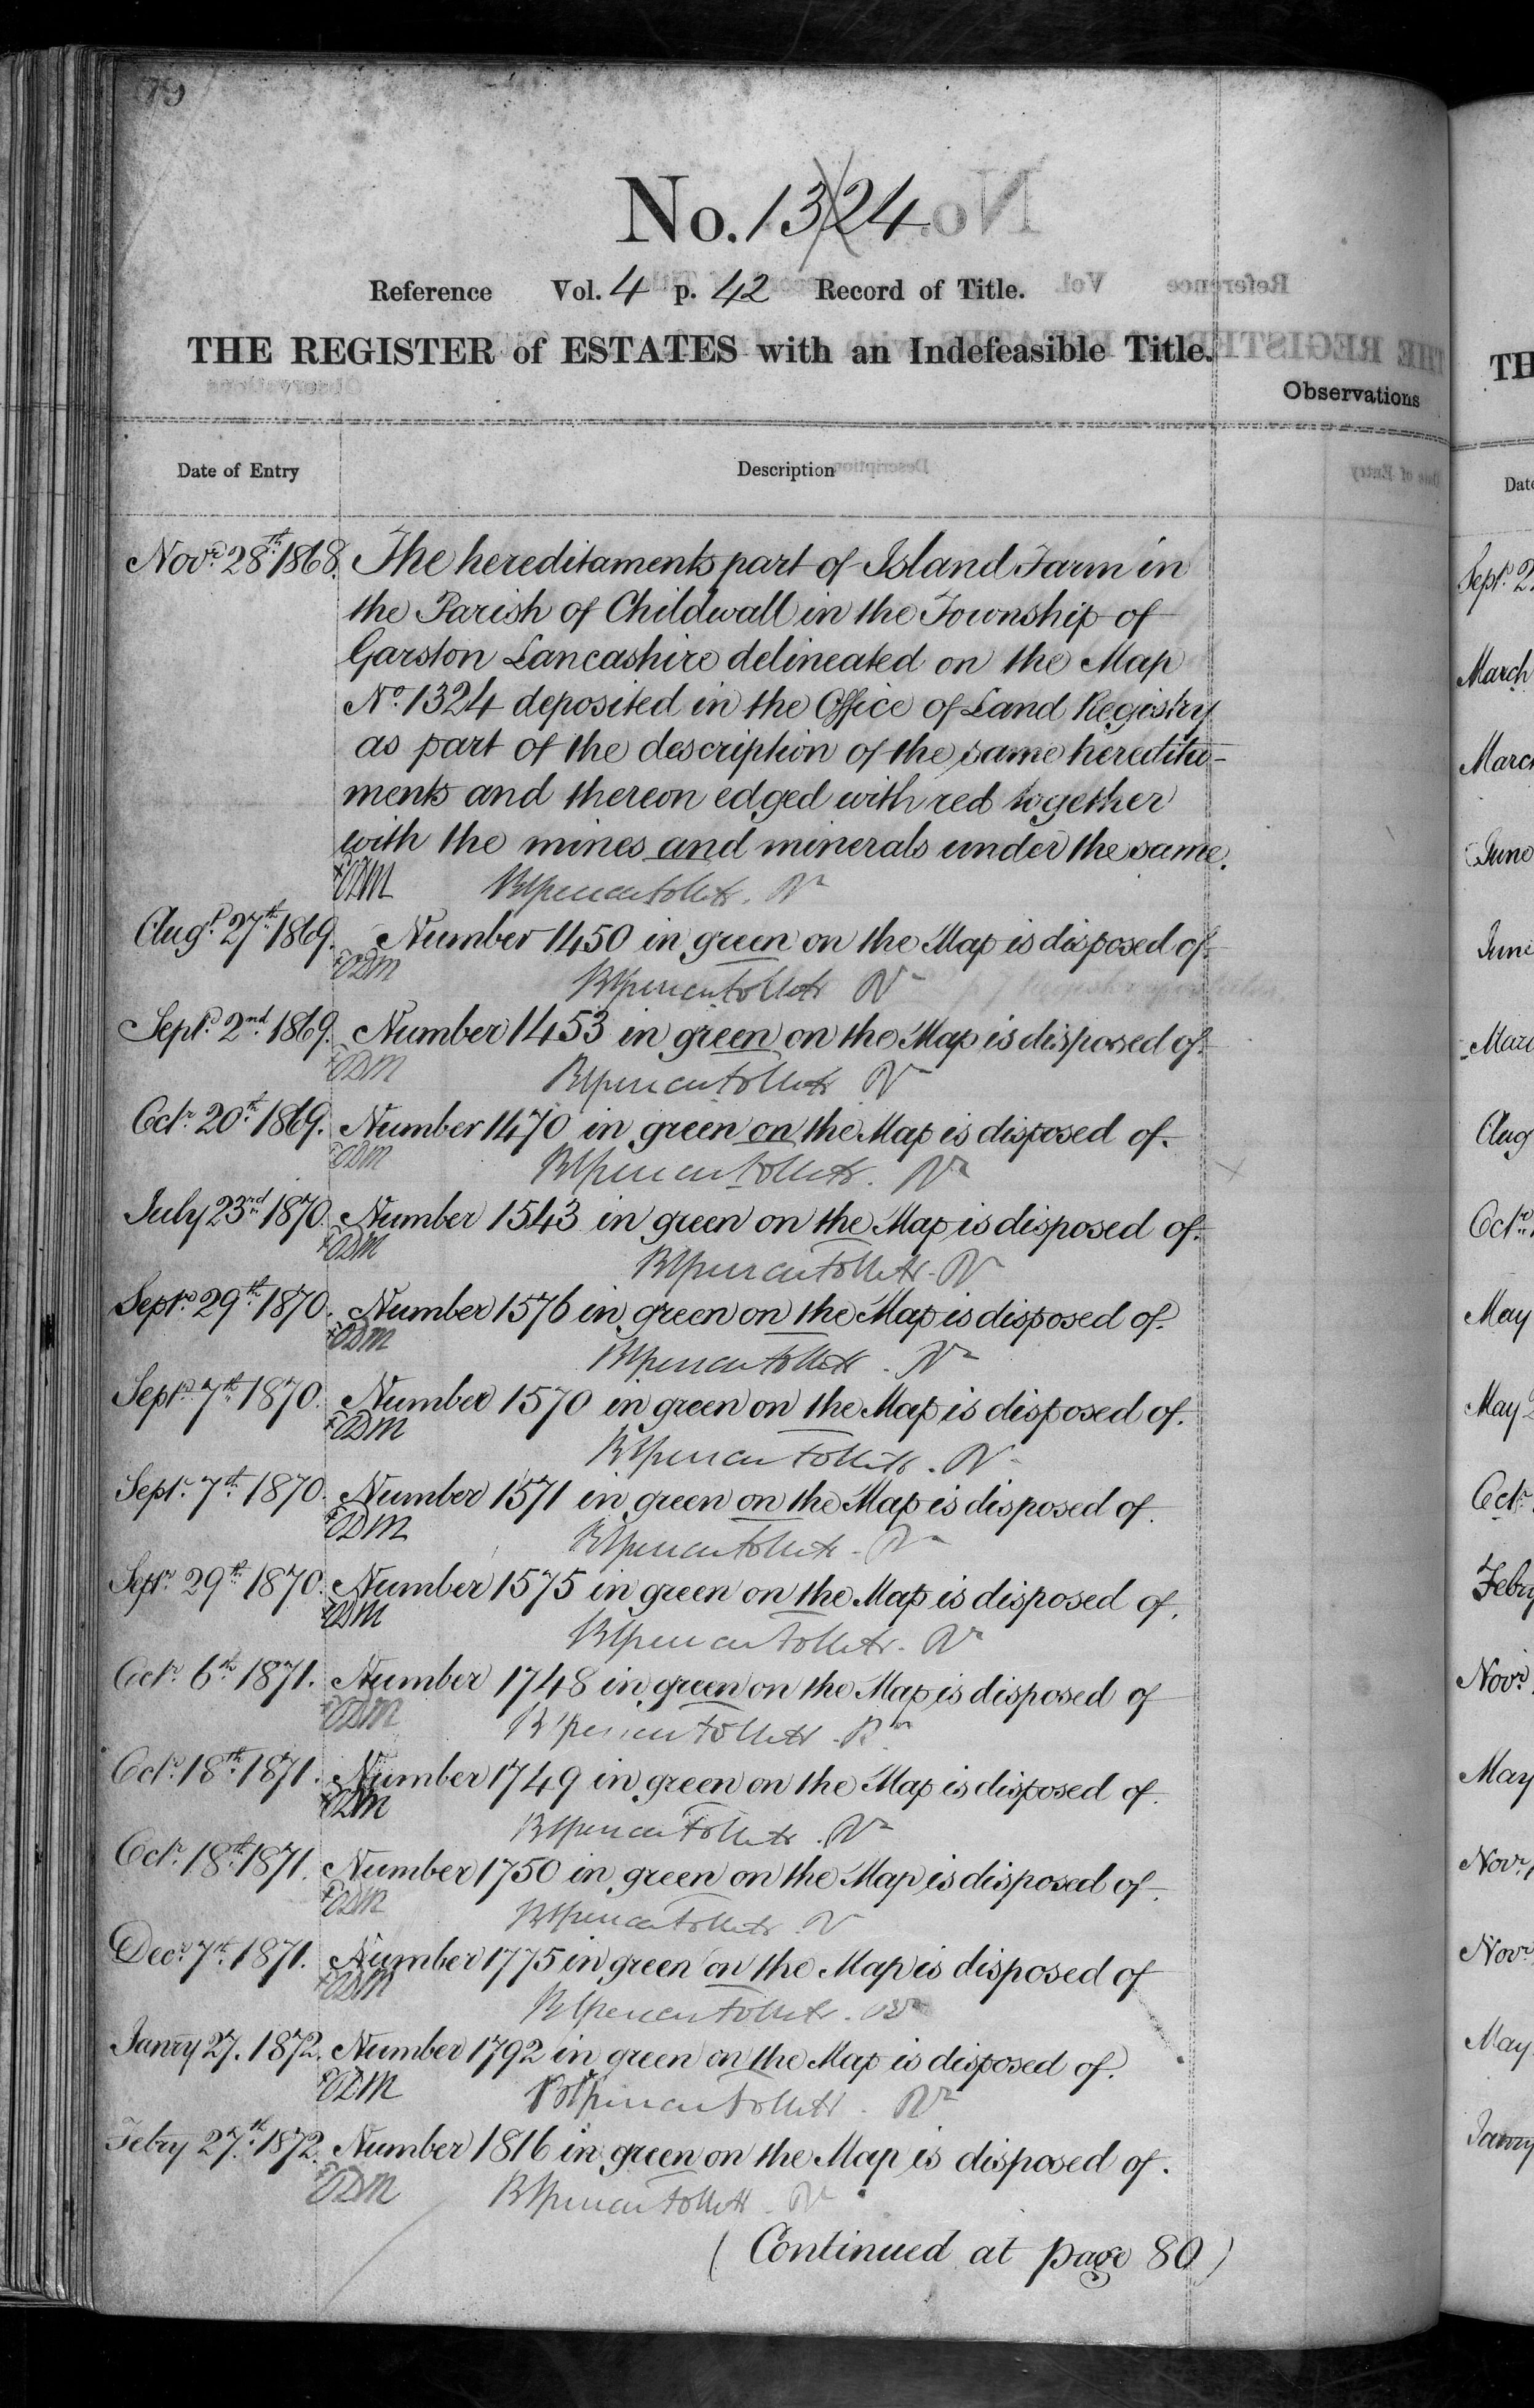 79
No. 1324
Reference Vol. 4 p. 42 Record of Title.
THE REGISTER of ESTATES with an Indefeasible Title.
Observations
Date of Entry Description
Novr. 28th 1868. The hereditaments part of Island Farm in
the Parish of Childwall in the Township of
Garston Lancashire delineated on the Map
No. 1324 deposited in the Office of Land Registry
as part of the description of the same heredita-
ments and thereon edged with red together
with the mines and minerals under the same.
Augt. 27th 1869. Number 1450 in green on the Map is disposed of.
Septr. 2nd 1869. Number 1453 in green on the Map is disposed of.
Octr. 20th 1869. Number 1470 in green on the Map is disposed of.
July 23rd 1870. Number 1543 in green on the Map is disposed of.
Septr. 29th 1870. Number 1576 in green on the Map is disposed of.
Septr. 7th 1870. Number 1570 in green on the Map is disposed of.
Septr. 7th 1870. Number 1571 in green on the Map is disposed of.
Septr. 29th 1870. Number 1575 in green on the Map is disposed of.
Octr. 6th 1871. Number 1748 in green on the Map is disposed of
Octr. 18th 1871. Number 1749 in green on the Map is disposed of.
Octr. 18th 1871. Number 1750 in green on the Map is disposed of.
Decr. 7th 1871. Number 1775 in green on the Map is disposed of
Janry 27. 1872. Number 1792 in green on the Map is disposed of.
Febry 27th 1872. Number 1816 in green on the Map is disposed of.
(Continued at page 80)
TH
Date
Septr. 2
March
March
June
June
Aug
Octr.
May
May 2
Octr.
Febry
Novr.
May
Novr.
Novr.
May
Janry